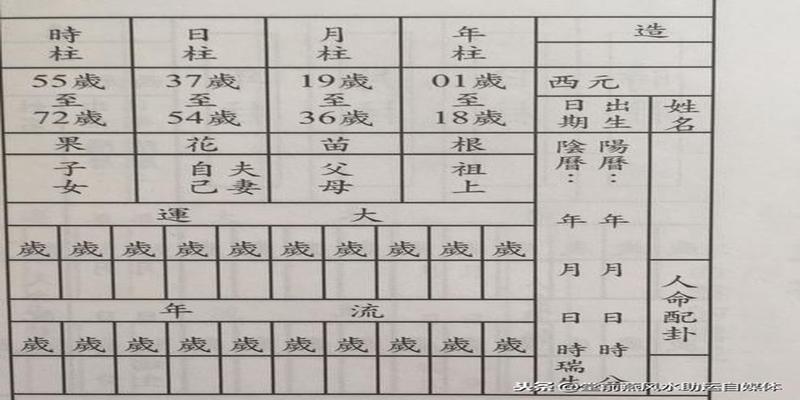 造
西元
姓名
出生日期
陽曆：年 月 日 時
陰曆：年 月 日 時瑞生
人命配卦
年柱 月柱 日柱 時柱
01歲至18歲 19歲至36歲 37歲至54歲 55歲至72歲
根 苗 花 果
祖上 父母 夫妻自己 子女
大運
歲 歲 歲 歲 歲 歲 歲 歲 歲 歲
流年
歲 歲 歲 歲 歲 歲 歲 歲 歲 歲
头条 @堂前燕风水助运自媒体